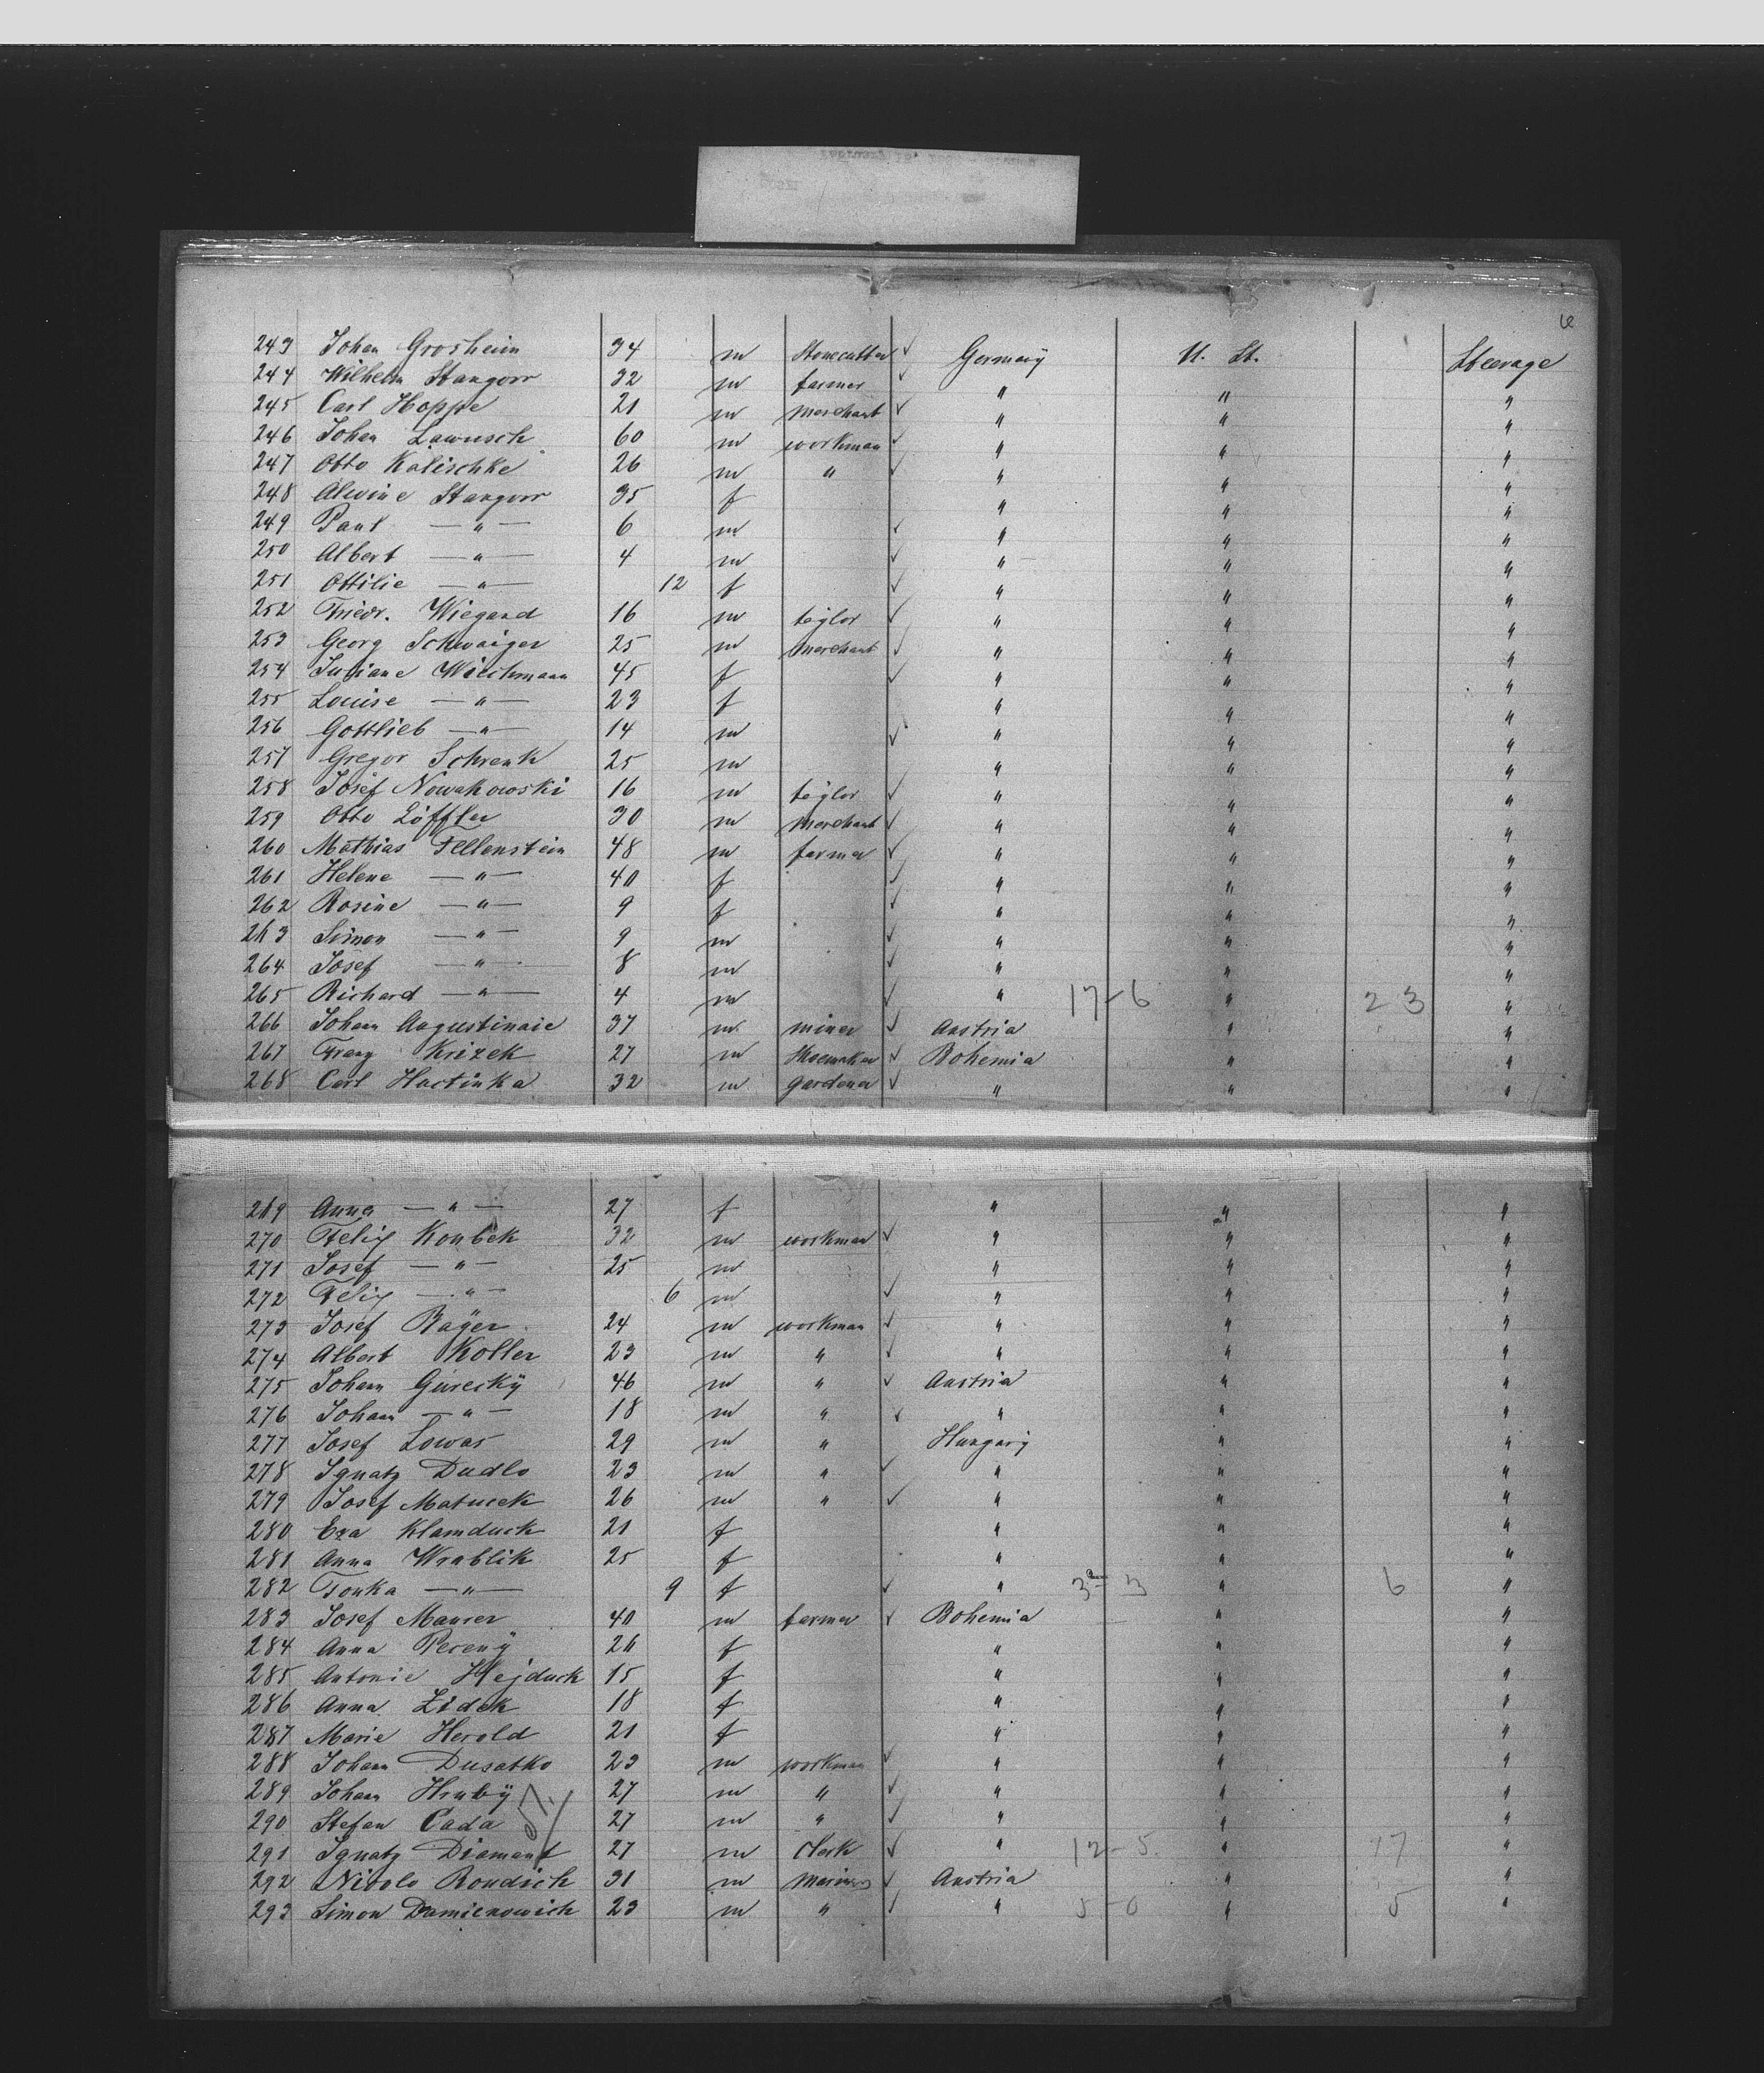 6
243 Johan Grosheim 34 m Stonecutter ✓ Germany U. St. Steerage
244 Wilhelm Stangorr 32 m farmer ✓ " " "
245 Carl Hoppe 21 m merchant ✓ " " "
246 Johan Lawusch 60 m workman ✓ " " "
247 Otto Kalischke 26 m " ✓ " " "
248 Alwine Stangorr 35 f " " "
249 Paul — " — 6 m ✓ " " "
250 Albert — " — 4 m ✓ " " "
251 Ottilie — " — 12 f ✓ " " "
252 Friedr. Wiegand 16 m taylor ✓ " " "
253 Georg Schwaiger 25 m merchant ✓ " " "
254 Juliane Wiechmann 45 f ✓ " " "
255 Louise — " — 23 f " " "
256 Gottlieb — " — 14 m ✓ " " "
257 Gregor Schrenk 25 m " " "
258 Josef Nowakowski 16 m taylor ✓ " " "
259 Otto Löffler 30 m merchant ✓ " " "
260 Mathias Fellenstein 48 m farmer ✓ " " "
261 Helene — " — 40 f ✓ " " "
262 Rosine — " — 9 f ✓ " " "
263 Simon — " — 9 m ✓ " " "
264 Josef — " — 8 m ✓ " " "
265 Richard — " — 4 m ✓ " 17-6 " 23 "
266 Johann Augustinaie 37 m miner ✓ Austria " "
267 Franz Krizek 27 m Shoemaker ✓ Bohemia " "
268 Carl Hactinka 32 m gardener ✓ " " "
269 Anna — " — 27 f " " "
270 Felix Koubek 32 m workman ✓ " " "
271 Josef — " — 25 m " " "
272 Felix — " — 6 m ✓ " " "
273 Josef Bayer 24 m workman ✓ " " "
274 Albert Koller 23 m " ✓ " " "
275 Johann Gurecky 46 m " ✓ Austria " "
276 Johann — " — 18 m " ✓ " " "
277 Josef Lowas 29 m " Hungary " "
278 Ignatz Dudlo 23 m " ✓ " " "
279 Josef Matucek 26 m " ✓ " " "
280 Eva Klamduck 21 f " " "
281 Anna Wrablik 25 f " " "
282 Tonka — " — 9 f ✓ " 3-3 " 6 "
283 Josef Maurer 40 m farmer ✓ Bohemia " "
284 Anna Pereny 26 f " " "
285 Antonie Hejduck 15 f " " "
286 Anna Zidek 18 f " " "
287 Marie Herold 21 f " " "
288 Johann Dusatko 23 m workman ✓ " " "
289 Johann Hruby 27 m " ✓ " " "
290 Stefan Cada 27 m " ✓ " " "
291 Ignatz Diamant 27 m clerk ✓ " 12-5 " 17 "
292 Nicolo Roudich 31 m mariner ✓ Austria " "
293 Simon Damienowich 23 m " ✓ " 5-0 " 5 "